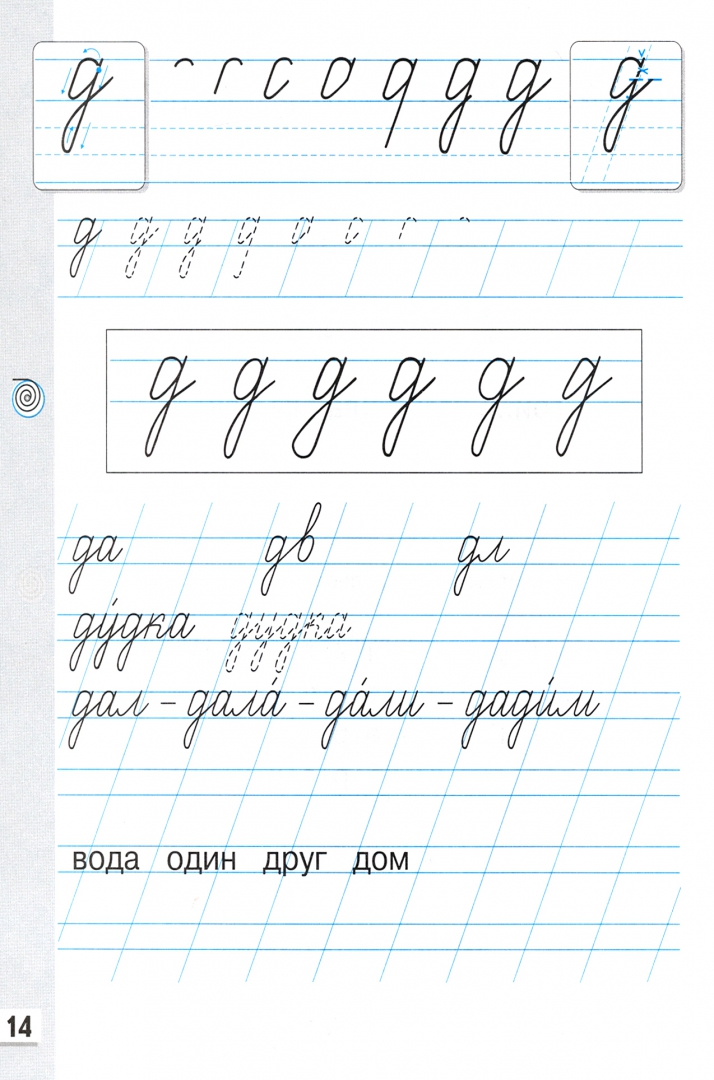 д д д
д д д
д д д д д д
да дв дл
ду́дка дудка
дал – дала́ – да́ли – дади́м
вода один друг дом
14